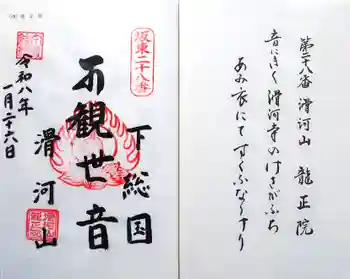 第二十八番 滑河山 龍正院
音にきく滑河寺のけさがふち
あみ衣にてすくふなりけり
坂東二十八番
下総国
観世音
滑河山
令和八年
一月二十六日